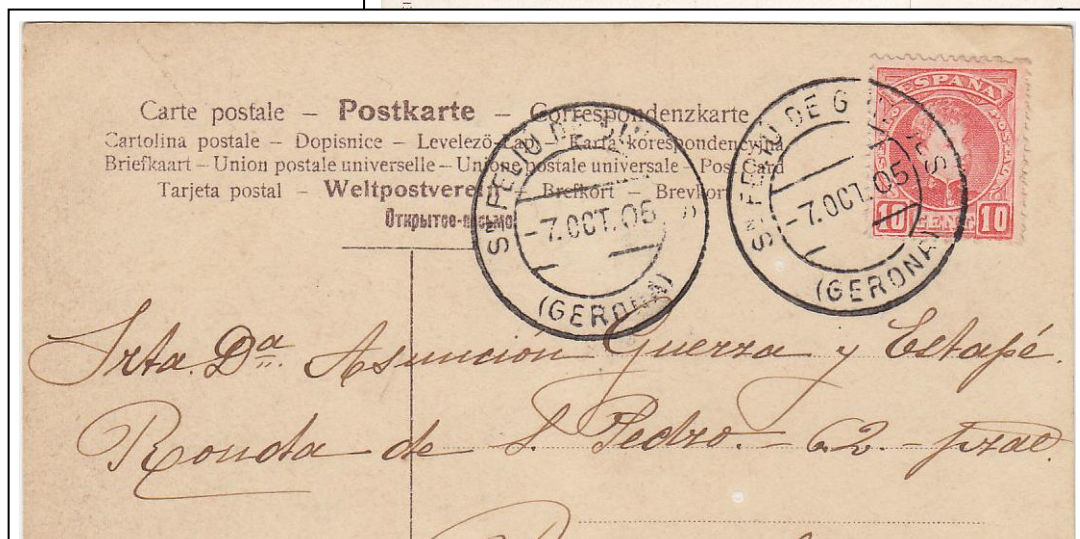 Carte postale – Postkarte – Correspondenzkarte
Cartolina postale – Dopisnice – Levelező-Lap – Karta korespondencyjna
Briefkaart – Union postale universelle – Unione postale universale – Post Card
Tarjeta postal – Weltpostverein – Brefkort – Brevkort
Открытое-письмо
S. FELIU DE GUIXOLS
-7.OCT.05
(GERONA)
S. FELIU DE GUIXOLS
-7.OCT.05
(GERONA)
ESPAÑA
10 CENT 10
Srta. Dª. Asunción Guerra y Estapé.
Ronda de S. Pedro. - 62 - pral.